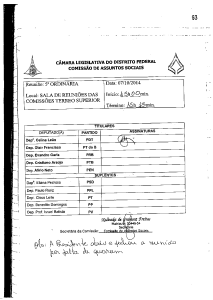 63
CÂMARA LEGISLATIVA DO DISTRITO FEDERAL
COMISSÃO DE ASSUNTOS SOCIAIS
Reunião: 5ª ORDINÁRIA
Data: 07/10/2014
Local: SALA DE REUNIÕES DAS
COMISSÕES TERREO SUPERIOR
Início:
Término:
TITULARES
DEPUTADO(A) PARTIDO ASSINATURAS
Depª. Celina Leão PDT
Dep. Dian Francisco PT do B
Dep. Evandro Garla PRB
Dep. Cristiano Araújo PTB
Dep. Alírio Neto PEN
SUPLENTES
Depª. Eliana Pedrosa PSD
Dep. Paulo Roriz PPL
Dep. Chico Leite PT
Dep. Benedito Domingos PP
Dep. Prof. Israel Batista PV
Freitas
Secretária
Secretária da Comissão: Comissão de Assuntos Sociais
a reunião
por falta de quorum